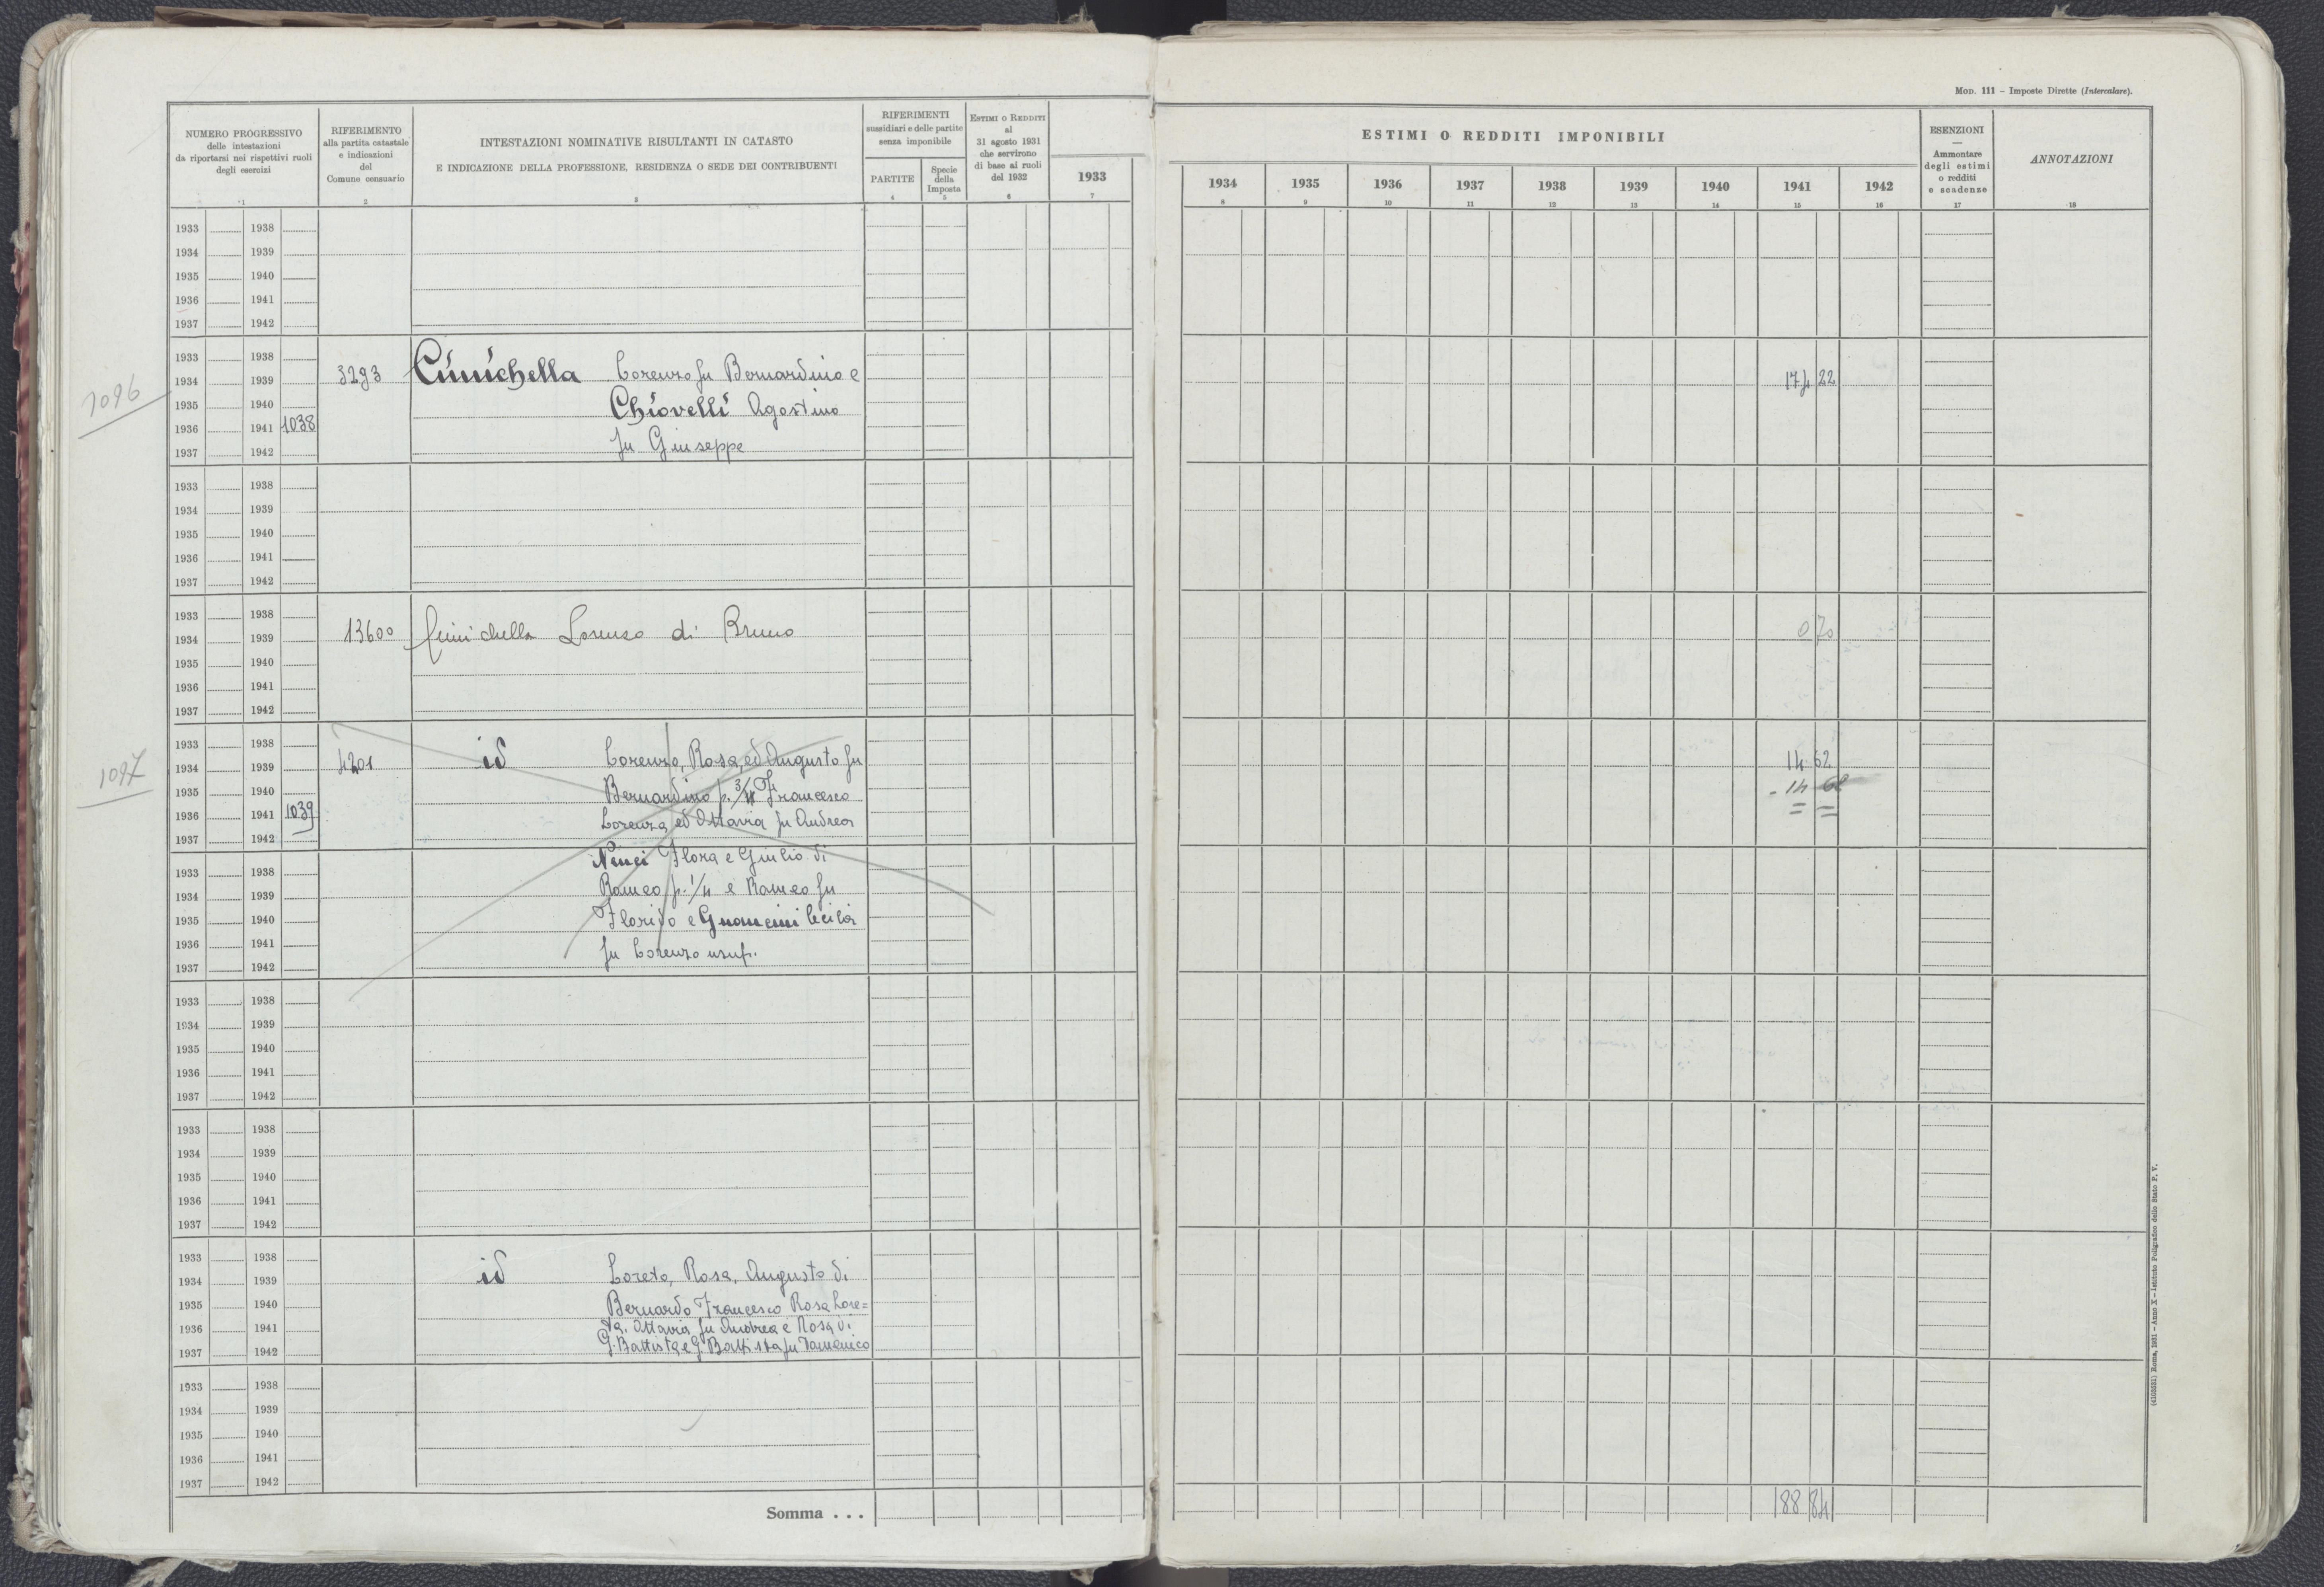 MOD. 111 – Imposte Dirette (Intercalare).
NUMERO PROGRESSIVO
delle intestazioni
da riportarsi nei rispettivi ruoli
degli esercizi
1
RIFERIMENTO
alla partita catastale
e indicazioni
del
Comune censuario
2
INTESTAZIONI NOMINATIVE RISULTANTI IN CATASTO
E INDICAZIONE DELLA PROFESSIONE, RESIDENZA O SEDE DEI CONTRIBUENTI
3
RIFERIMENTI
sussidiari e delle partite
senza imponibile
PARTITE
4
Specie
della
Imposta
5
ESTIMI O REDDITI
al
31 agosto 1931
che servirono
di base ai ruoli
del 1932
6
1933
7
ESTIMI O REDDITI IMPONIBILI
1934 1935 1936 1937 1938 1939 1940 1941 1942
8 9 10 11 12 13 14 15 16
ESENZIONI
—
Ammontare
degli estimi
o redditi
e scadenze
17
ANNOTAZIONI
18
1933 1938
1934 1939
1935 1940
1936 1941
1937 1942
1096
1933 1938
1934 1939 3293 Cinichella Lorenzo fu Bernardino e 174 22
1935 1940 Chiovelli Agostino
1936 1941 1038
1937 1942 fu Giuseppe
1933 1938
1934 1939
1935 1940
1936 1941
1937 1942
1933 1938
1934 1939 13600 Cinichella Lorenzo di Bruno 0 70
1935 1940
1936 1941
1937 1942
1097
1933 1938
1934 1939 4201 id Lorenzo, Rosa, ed Augusto fu 14 62
1935 1940 Bernardino p. 3/4 Francesco - 14 62
1936 1941 1039 Lorenza ed Ottavia fu Andrea = =
1937 1942
Nenci Flora e Giulio di
1933 1938
1934 1939 Romeo p. 1/4 e Romeo fu
1935 1940 Florido e Cecilia
1936 1941
1937 1942 fu Lorenzo usuf.
1933 1938
1934 1939
1935 1940
1936 1941
1937 1942
1933 1938
1934 1939
1935 1940
1936 1941
1937 1942
1933 1938
1934 1939 id Loreto, Rosa, Augusto di
1935 1940 Bernardo Francesco Rosa Lore=
1936 1941 ta, Ottavia fu Andrea e Rosa di
1937 1942 G. Battista e G. Battista fu Domenico
1933 1938
1934 1939
1935 1940
1936 1941
1937 1942
Somma . . . 188 84
(4103531) Roma, 1931 – Anno X – Istituto Poligrafico dello Stato P. V.